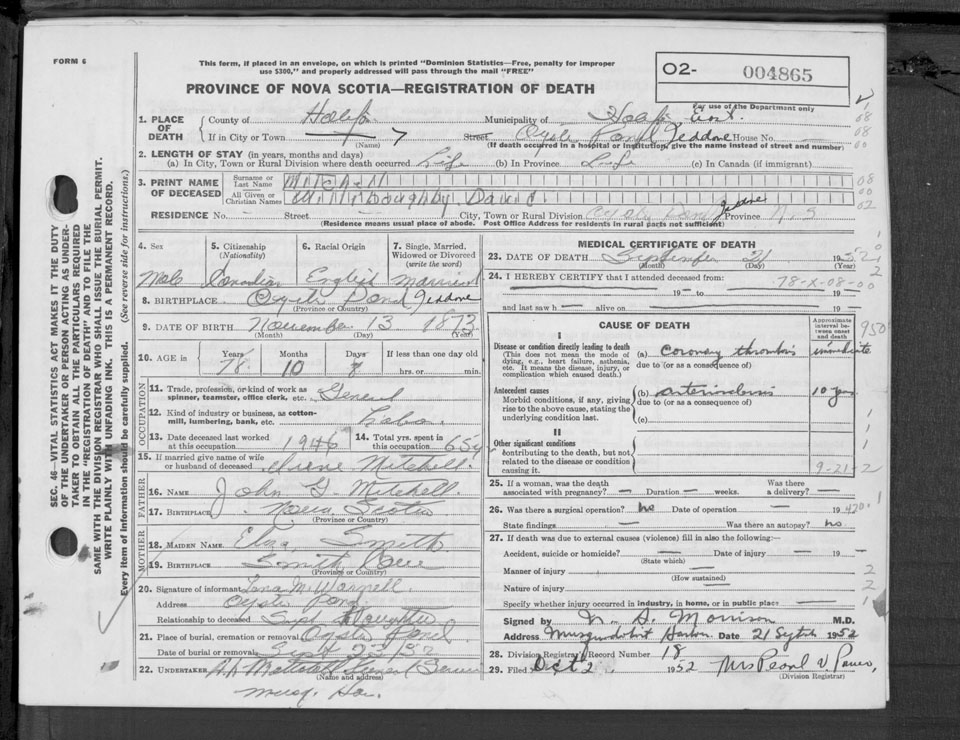 FORM 6
This form, if placed in an envelope, on which is printed "Dominion Statistics—Free, penalty for improper
use $300," and properly addressed will pass through the mail "FREE"
PROVINCE OF NOVA SCOTIA—REGISTRATION OF DEATH
O2- 004865
For use of the Department only
1. PLACE OF DEATH County of Halifax Municipality of East.
If in City or Town (Name) Street Oyster Pond Jeddore House No.
(If death occurred in a hospital or institution, give the name instead of street and number)
2. LENGTH OF STAY (in years, months and days)
(a) In City, Town or Rural Division where death occurred Life (b) In Province Life (c) In Canada (if immigrant)
3. PRINT NAME OF DECEASED Surname or Last Name Mitchell
All Given or Christian Names David
RESIDENCE No. — Street — City, Town or Rural Division Oyster Pond Jeddore Province N. S
(Residence means usual place of abode. Post Office Address for residents in rural parts not sufficient)
4. Sex 5. Citizenship (Nationality) 6. Racial Origin 7. Single, Married, Widowed or Divorced (write the word)
Male Canadian English Married
8. BIRTHPLACE Oyster Pond Jeddore
(Province or Country)
9. DATE OF BIRTH November 13 1873
(Month) (Day) (Year)
10. AGE in Years Months Days If less than one day old
78 10 8 hrs. or min.
OCCUPATION
11. Trade, profession, or kind of work as spinner, teamster, office clerk, etc. General
12. Kind of industry or business, as cotton-mill, lumbering, bank, etc. Labor
13. Date deceased last worked at this occupation 1946 14. Total yrs. spent in this occupation 65 y
15. If married give name of wife or husband of deceased Mitchell.
FATHER
16. NAME John G. Mitchell.
17. BIRTHPLACE Nova Scotia
(Province or Country)
MOTHER
18. MAIDEN NAME. Smith
19. BIRTHPLACE Smith Cove
(Province or Country)
20. Signature of informant M.
Address Oyster Pond
Relationship to deceased Daughter
21. Place of burial, cremation or removal Oyster Pond
Date of burial or removal Sept 23/52
22. UNDERTAKER
(Name and address)
MEDICAL CERTIFICATE OF DEATH
23. DATE OF DEATH September 21 1952
(Month) (Day) (Year)
24. I HEREBY CERTIFY that I attended deceased from: 78-X-08-00
19 — to — 19
and last saw h — alive on — 19
CAUSE OF DEATH
Approximate interval between onset and death
I
Disease or condition directly leading to death
(This does not mean the mode of dying, e.g., heart failure, asthenia, etc. It means the disease, injury, or complication which caused death.)
(a) coronary thrombosis immediate
due to (or as a consequence of)
Antecedent causes
Morbid conditions, if any, giving rise to the above cause, stating the underlying condition last.
(b) arteriosclerosis 10 years
due to (or as a consequence of)
(c)
II
Other significant conditions
contributing to the death, but not related to the disease or condition causing it.
9-21-2
25. If a woman, was the death associated with pregnancy? — Duration — weeks. Was there a delivery? —
26. Was there a surgical operation? no Date of operation — 19
State findings — Was there an autopsy? no
27. If death was due to external causes (violence) fill in also the following:—
Accident, suicide or homicide? — Date of injury — 19 —
(State which)
Manner of injury
(How sustained)
Nature of injury
Specify whether injury occurred in industry, in home, or in public place —
Signed by Morrison M.D.
Address Musquodoboit Harbor Date 21 Sept 1952
28. Division Registry Record Number 18
29. Filed Oct 2 1952 Mrs Pearl V.
(Division Registrar)
SEC. 46—VITAL STATISTICS ACT MAKES IT THE DUTY
OF THE UNDERTAKER OR PERSON ACTING AS UNDER-
TAKER TO OBTAIN ALL THE PARTICULARS REQUIRED
IN THE "REGISTRATION OF DEATH" AND TO FILE THE
SAME WITH THE DIVISION REGISTRAR WHO SHALL ISSUE THE BURIAL PERMIT.
WRITE PLAINLY WITH UNFADING INK. THIS IS A PERMANENT RECORD.
Every item of information should be carefully supplied. (See reverse side for instructions.)